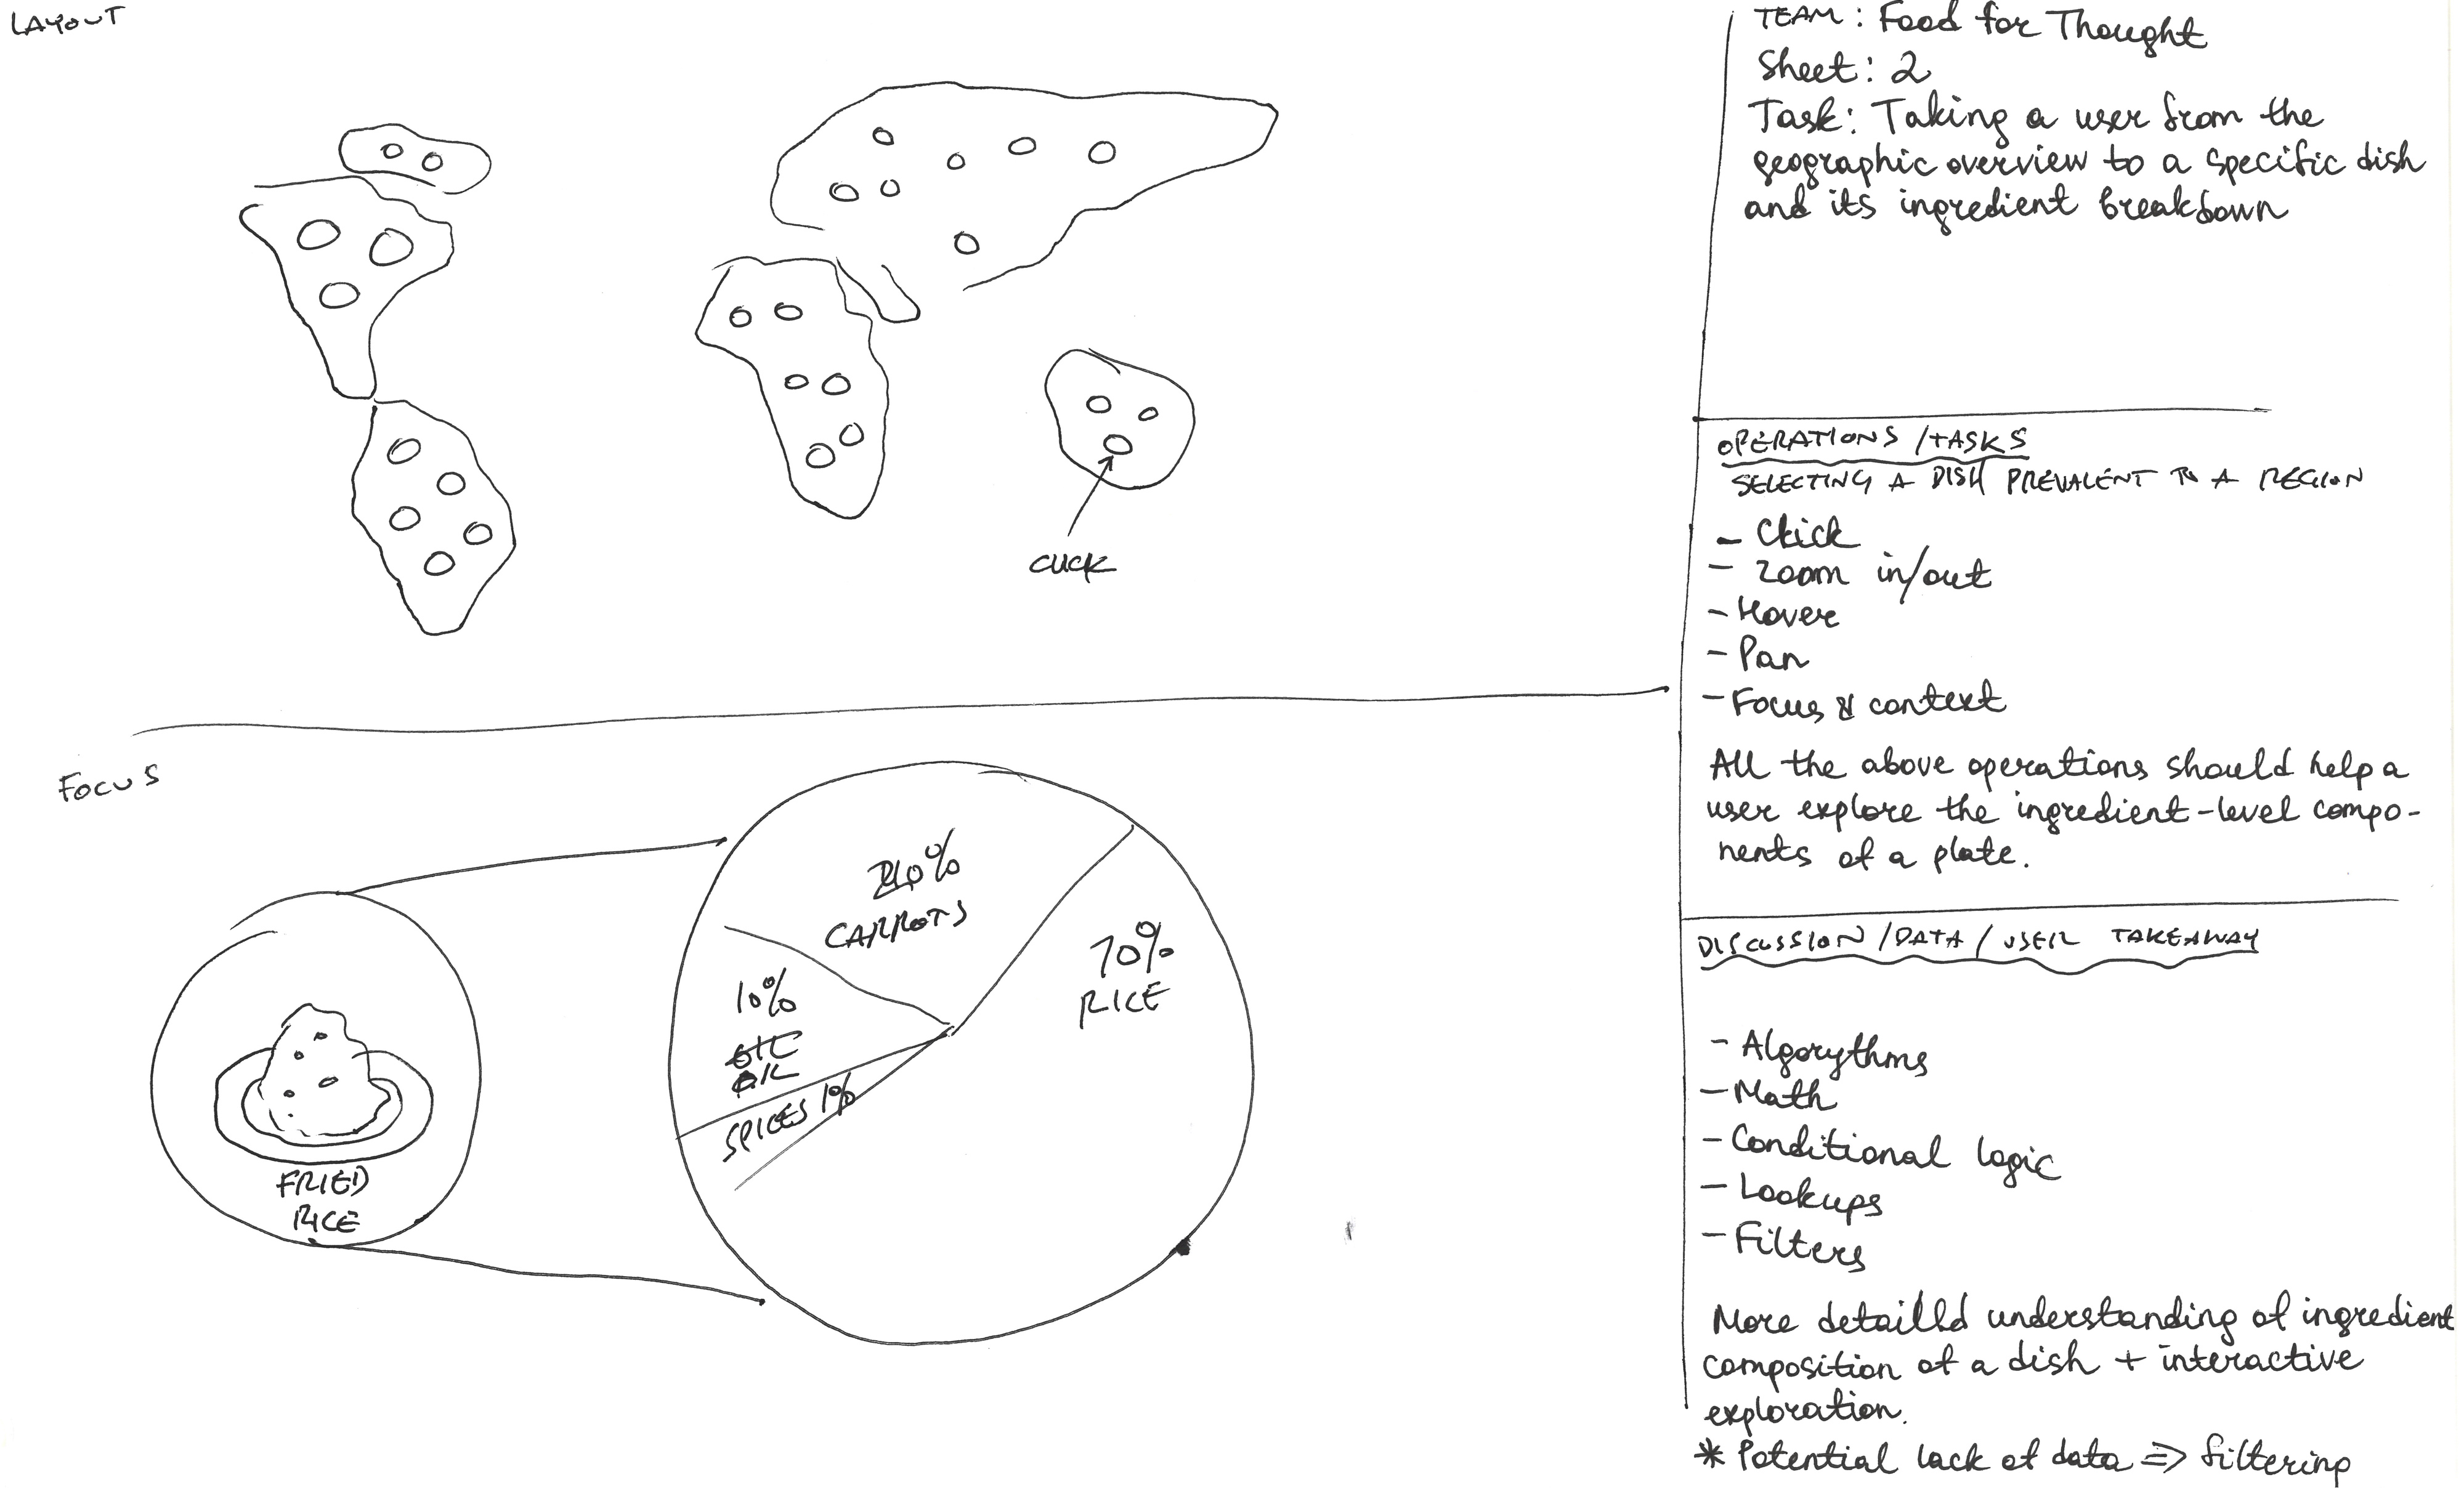 LAYOUT
CLICK
FOCUS
FRIED
RICE
CARROTS
10%
OIL
SPICES 1%
70%
RICE
TEAM: Food for Thought
Sheet: 2
Task: Taking a user from the
geographic overview to a specific dish
and its ingredient breakdown
OPERATIONS/TASKS
SELECTING A DISH PREVALENT TO A REGION
- Click
- Zoom in/out
- Hover
- Pan
- Focus & context
All the above operations should help a
user explore the ingredient-level compo-
nents of a plate.
DISCUSSION/DATA/USER TAKEAWAY
- Algorythms
- Math
- Conditional logic
- Lookups
- Filters
More detailld understanding of ingredient
composition of a dish + interactive
exploration.
* Potential lack of data => filtering